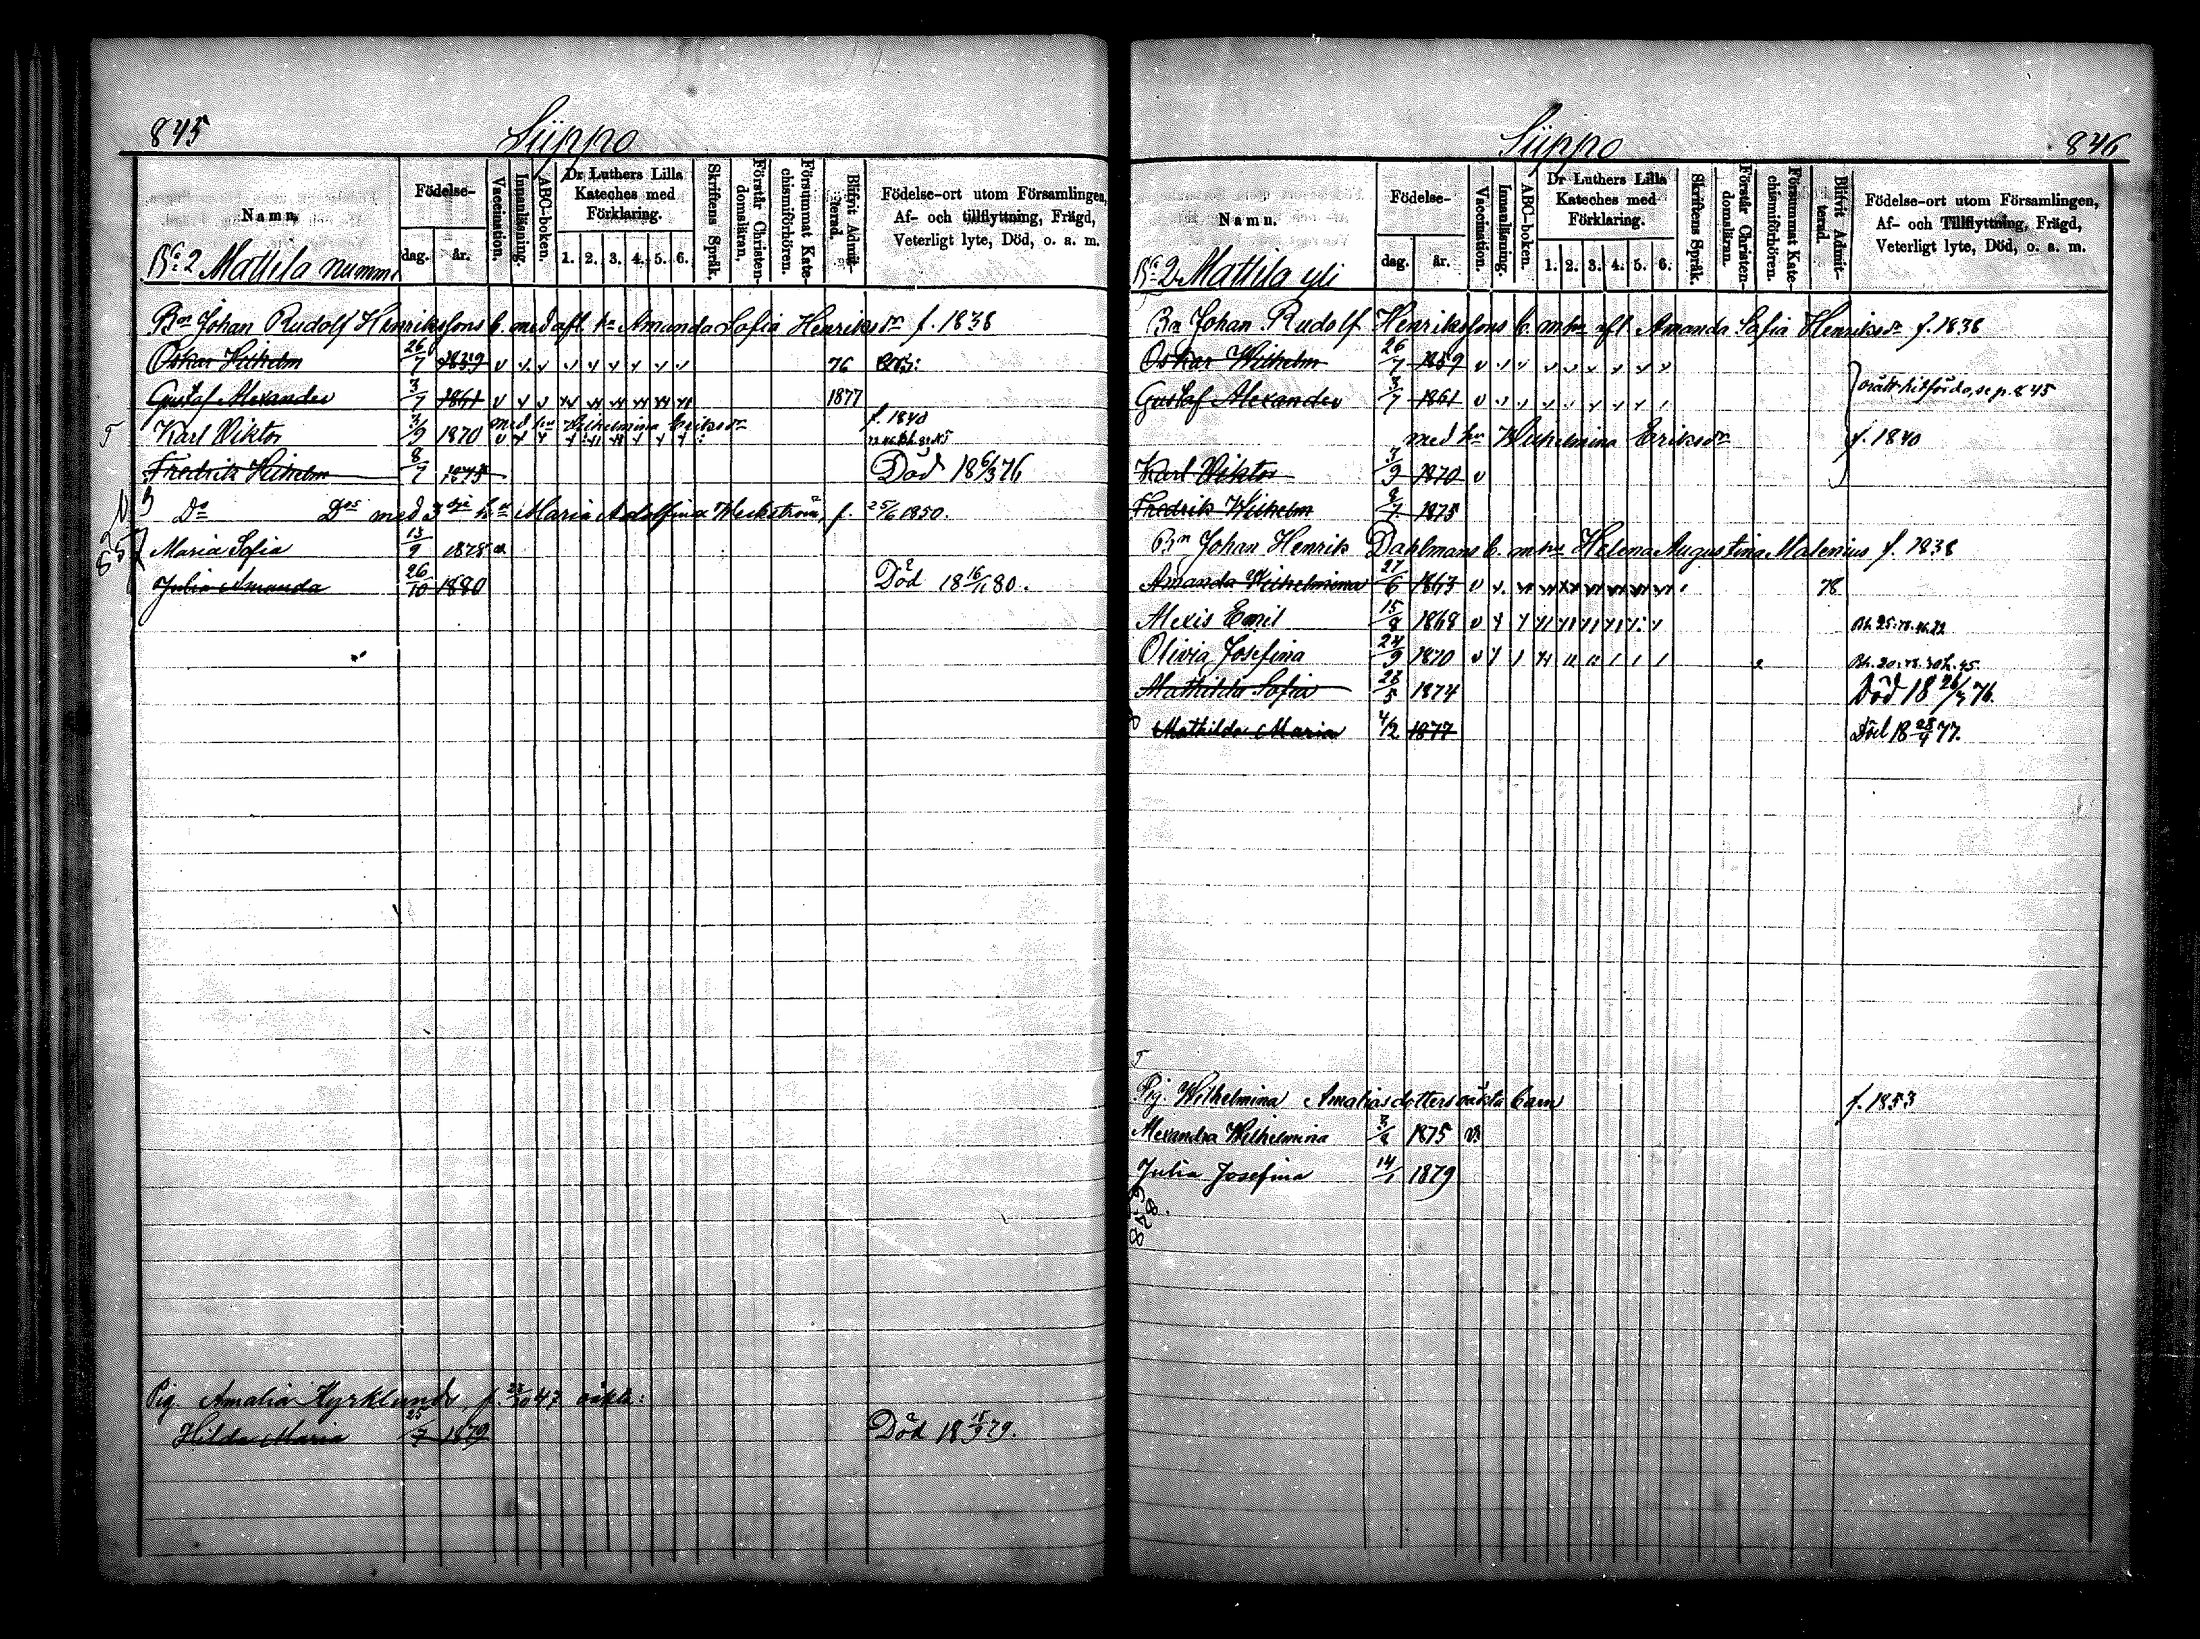 845 Siippo
Namn.
Födelse-
dag. år.
Vaccination.
Innanläsning.
ABC-boken.
Dr Luthers Lilla Kateches med Förklaring.
1. 2. 3. 4. 5. 6.
Skriftens Språk.
Förstår Christen-domsläran.
Försummat Kate-chismiförhören.
Blifvit Admit-terad.
Födelse-ort utom Församlingen,
Af- och tillflyttning, Frägd,
Veterligt lyte, Död, o. a. m.
No 2 Mattila nummi
Bn Johan Rudolf Henrikssons b. med afl. hu Amanda Sofia Henriksdr f. 1838
Oskar Wilhelm 26/7 1859 v 76
Gustaf Alexander 3/7 1861 v 1877
med hu Wilhelmina Eriksdr f. 1840
Karl Viktor 3/9 1870 v
Fredrik Wilhelm 8/7 1875 Död 18 6/3 76
Do Dos med 3dje hu Maria Adolfina Weckström, f. 25/6 1850.
Maria Sofia 13/9 1878
857
Julia Amanda 26/10 1880 Död 18 16/11 80.
Pig. Amalia Hyrklund, f. 23/10 47 oäkta:
Hilda Maria 25/7 1879 Död 18 15/9 79.
Siippo 846
Namn.
Födelse-
dag. år.
Vaccination.
Innanläsning.
ABC-boken.
Dr Luthers Lilla Kateches med Förklaring.
1. 2. 3. 4. 5. 6.
Skriftens Språk.
Förstår Christen-domsläran.
Försummat Kate-chismiförhören.
Blifvit Admit-terad.
Födelse-ort utom Församlingen,
Af- och Tillflyttning, Frägd,
Veterligt lyte, Död, o. a. m.
No 2 Mattila yli
Bn Johan Rudolf Henrikssons b. m. hu afl. Amanda Sofia Henriksdr f. 1838
Oskar Wilhelm 26/7 1859 v
Gustaf Alexander 3/7 1861 v orätt hitförda, se p. 845
med hu Wilhelmina Eriksdr f. 1840
Karl Viktor 3/9 1870 v
Fredrik Wilhelm 8/7 1875
Bn Johan Henrik Dahlmans b. m. hu Helena Augustina Malenius f. 1838
Amanda Wilhelmina 27/6 1863 v 78
Alexis Emil 15/8 1868 v
Olivia Josefina 24/9 1870 v
Mathilda Sofia 28/5 1874 Död 18 26/3 76.
Mathilda Maria 4/2 1877 Död 18 28/4 77.
Pig. Wilhelmina Amaliasdotters oäkta barn f. 1853
Alexandra Wilhelmina 1875 v
Julia Josefina 14/1 1879
878.